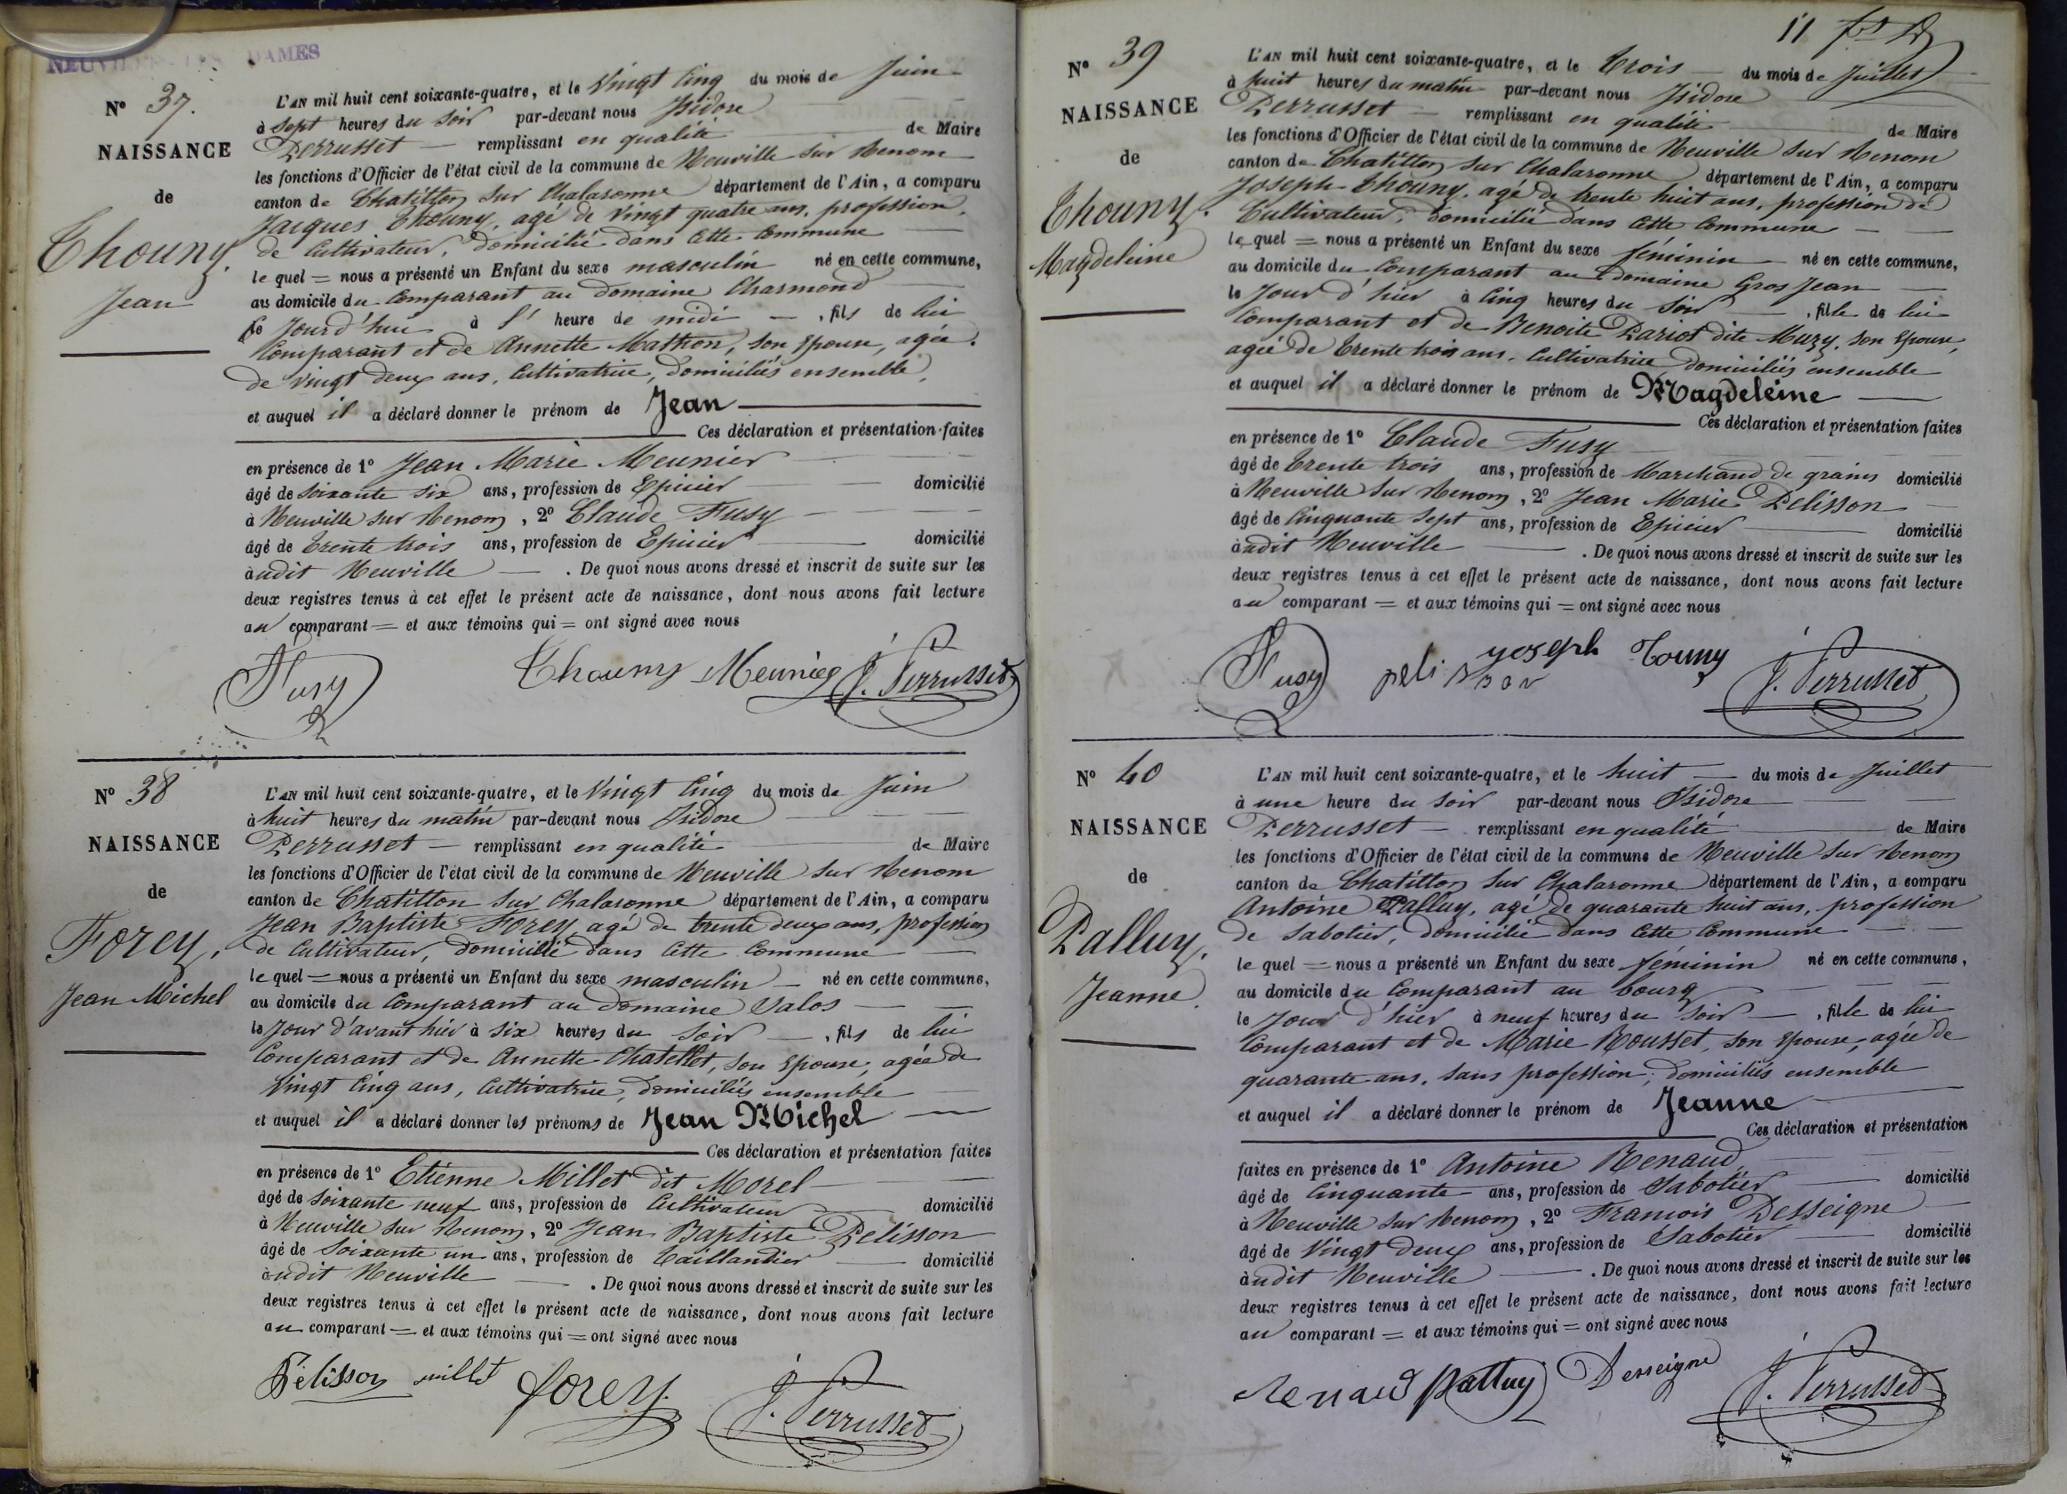 NEUVILLE-LES-DAMES
N° 37.
NAISSANCE
de
Thouny.
Jean
L'AN mil huit cent soixante-quatre, et le Vingt Cinq du mois de Juin
à sept heures du soir par-devant nous Isidore
Perrusset — remplissant en qualité de Maire
les fonctions d'Officier de l'état civil de la commune de Neuville sur Renom
canton de Chatillon sur Chalaronne département de l'Ain, a comparu
Jacques Thouny, agé de vingt quatre ans, profession
de Cultivateur, domicilié dans cette commune
le quel = nous a présenté un Enfant du sexe masculin né en cette commune,
au domicile du Comparant au Domaine Charmond
le Jourd'hui à l' heure de midi — , fils de lui
Comparant et de Annette Mathon, son Epouse, agée
de vingt deux ans, Cultivatrice, domiciliés ensemble,
et auquel il a déclaré donner le prénom de Jean
Ces déclaration et présentation faites
en présence de 1° Jean Marie Meunier
âgé de soixante six ans, profession de Epicier domicilié
à Neuville sur Renom, 2° Claude Fusy
âgé de trente trois ans, profession de Epicier domicilié
àudit Neuville — . De quoi nous avons dressé et inscrit de suite sur les
deux registres tenus à cet effet le présent acte de naissance, dont nous avons fait lecture
au comparant = et aux témoins qui = ont signé avec nous
Fusy Thouny Meunier J. Perrusset
N° 38
NAISSANCE
de
Forey.
Jean Michel
L'AN mil huit cent soixante-quatre, et le Vingt Cinq du mois de Juin
à huit heures du matin par-devant nous Isidore
Perrusset — remplissant en qualité de Maire
les fonctions d'Officier de l'état civil de la commune de Neuville sur Renom
canton de Chatillon sur Chalaronne département de l'Ain, a comparu
Jean Baptiste Forey, agé de trente deux ans, profession
de Cultivateur, domicilié dans cette commune
le quel = nous a présenté un Enfant du sexe masculin né en cette commune,
au domicile du Comparant au Domaine Valos
le Jour d'avant hier à six heures du soir — , fils de lui
Comparant et de Annette Chatellet, son Epouse, agée de
Vingt Cinq ans, Cultivatrice, domiciliés ensemble
et auquel il a déclaré donner les prénoms de Jean Michel
Ces déclaration et présentation faites
en présence de 1° Etienne Millet dit Morel
âgé de soixante neuf ans, profession de Cultivateur domicilié
à Neuville sur Renom, 2° Jean Baptiste Pelisson
âgé de soixante un ans, profession de Taillandier domicilié
àudit Neuville — . De quoi nous avons dressé et inscrit de suite sur les
deux registres tenus à cet effet le présent acte de naissance, dont nous avons fait lecture
au comparant = et aux témoins qui = ont signé avec nous
Pélisson millet forey J. Perrusset
11
N° 39
NAISSANCE
de
Thouny.
Magdeleine
L'AN mil huit cent soixante-quatre, et le trois du mois de Juillet
à huit heures du matin par-devant nous Isidore
Perrusset — remplissant en qualité de Maire
les fonctions d'Officier de l'état civil de la commune de Neuville sur Renom
canton de Chatillon sur Chalaronne département de l'Ain, a comparu
Joseph Thouny, agé de trente huit ans, profession de
Cultivateur, domicilié dans cette commune
le quel = nous a présenté un Enfant du sexe féminin né en cette commune,
au domicile du Comparant au Domaine Gros Jean
le Jour d'hier à Cinq heures du soir — , fille de lui
Comparant et de Benoite Pariot dite Muzy, son Epouse,
agée de trente trois ans, Cultivatrice domiciliés ensemble
et auquel il a déclaré donner le prénom de Magdeleine
Ces déclaration et présentation faites
en présence de 1° Claude Fusy
âgé de trente trois ans, profession de Marchand de grains domicilié
à Neuville sur Renom, 2° Jean Marie Pelisson
âgé de Cinquante sept ans, profession de Epicier domicilié
àudit Neuville — . De quoi nous avons dressé et inscrit de suite sur les
deux registres tenus à cet effet le présent acte de naissance, dont nous avons fait lecture
au comparant = et aux témoins qui = ont signé avec nous
Fusy pelisson yoseph Touny J. Perrusset
N° 40
NAISSANCE
de
Palluy.
Jeanne
L'AN mil huit cent soixante-quatre, et le huit du mois de Juillet
à une heure du soir par-devant nous Isidore
Perrusset — remplissant en qualité de Maire
les fonctions d'Officier de l'état civil de la commune de Neuville sur Renom
canton de Chatillon sur Chalaronne département de l'Ain, a comparu
Antoine Palluy, agé de quarante huit ans, profession
de Sabotier, domicilié dans cette commune
le quel = nous a présenté un Enfant du sexe féminin né en cette commune,
au domicile du Comparant au bourg
le Jour d'hier à neuf heures du soir — , fille de lui
Comparant et de Marie Rousset, son Epouse, agée de
quarante ans, sans profession, domiciliés ensemble
et auquel il a déclaré donner le prénom de Jeanne
Ces déclaration et présentation
faites en présence de 1° Antoine Renaud
âgé de Cinquante ans, profession de Sabotier domicilié
à Neuville sur Renom, 2° Francois Desseigne
âgé de Vingt deux ans, profession de Sabotier domicilié
àudit Neuville — . De quoi nous avons dressé et inscrit de suite sur les
deux registres tenus à cet effet le présent acte de naissance, dont nous avons fait lecture
au comparant = et aux témoins qui = ont signé avec nous
Renaud palluy Desseigne J. Perrusset